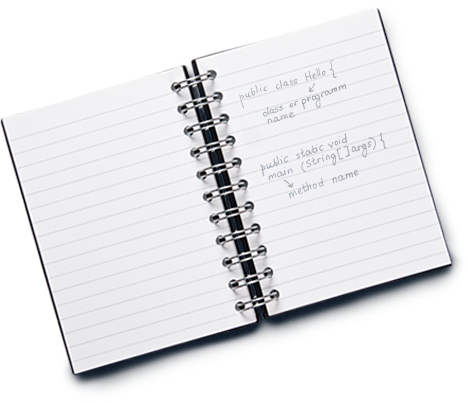 public class Hello {
class or programm
name
public static void
main (String[] args) {
method name